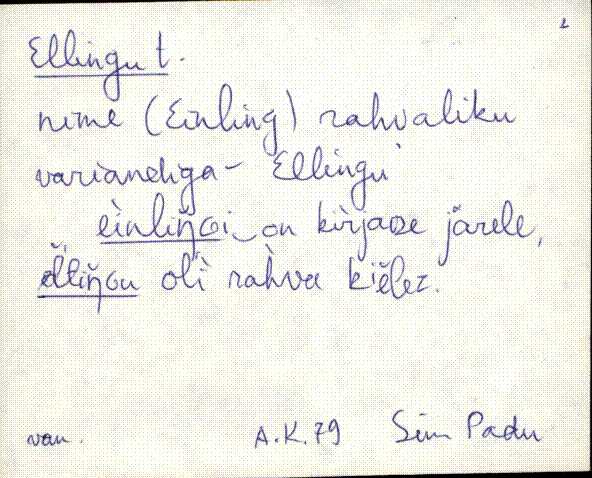 2
Ellingu t.
nime (Einling) rahvaliku
variandiga - Ellingu
einliŋŋi on kirjaᴅe järele,
oli rahva kiėleᴢ.
van. A.K. 79 Siim Padu